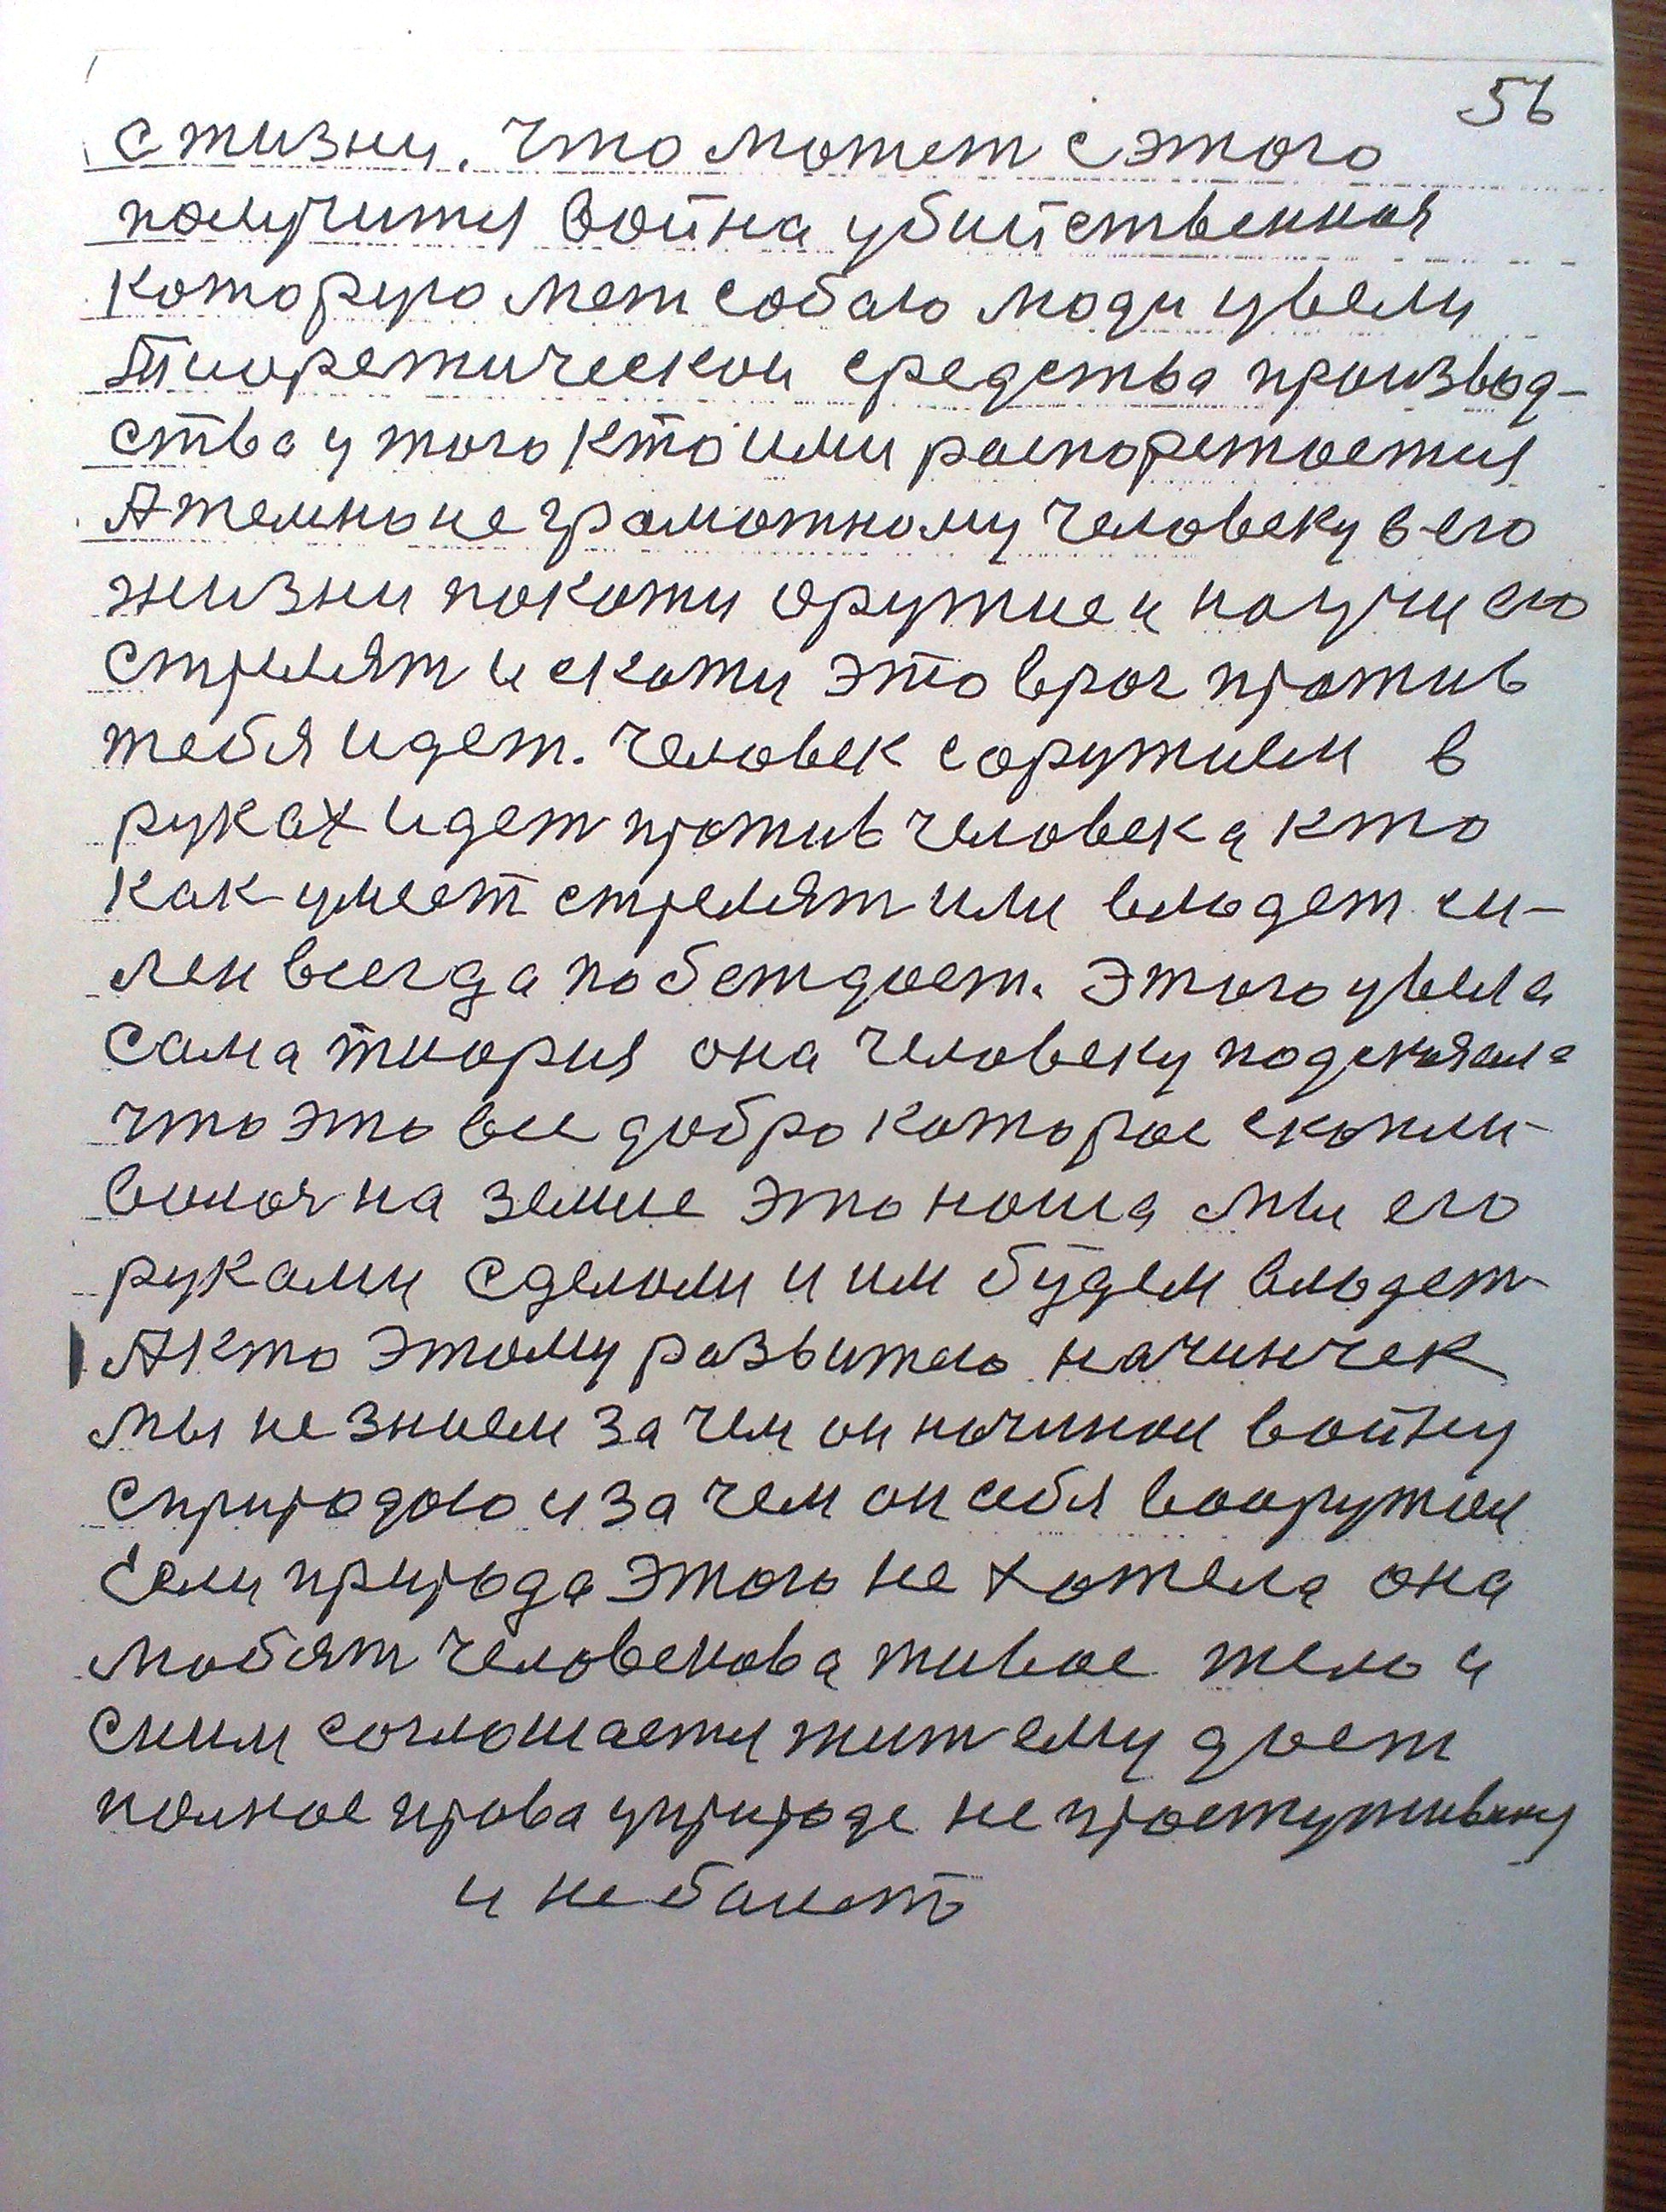 56
с жизни. Что может с этого
получится война убийственная
которую меж собаю люди увели
Тиоретическои средства производ-
ства у того кто ими распоряжается
А темно не грамотному человеку в его
жизни покажи оружие и научи его
стрилят и скажи это враг против
тебя идет. Человек соружием в
руках идет против человека кто
как умеет стрелят или владет си-
лен всегда побеждает. Этого увела
сама тиория она человеку подсказала
что это все добро которое скопли-
волоя на земле это наша мы его
руками сделали и им будем владет
А кто этому развитаю начинчек
мы не знаем за чем он начинал войну
с природою и за чем он себя вооружил
Если природа этого не хотела она
любят человекова живое тело и
сним соглошается жит ему дает
полное права у природе не простуживаня
и не болет